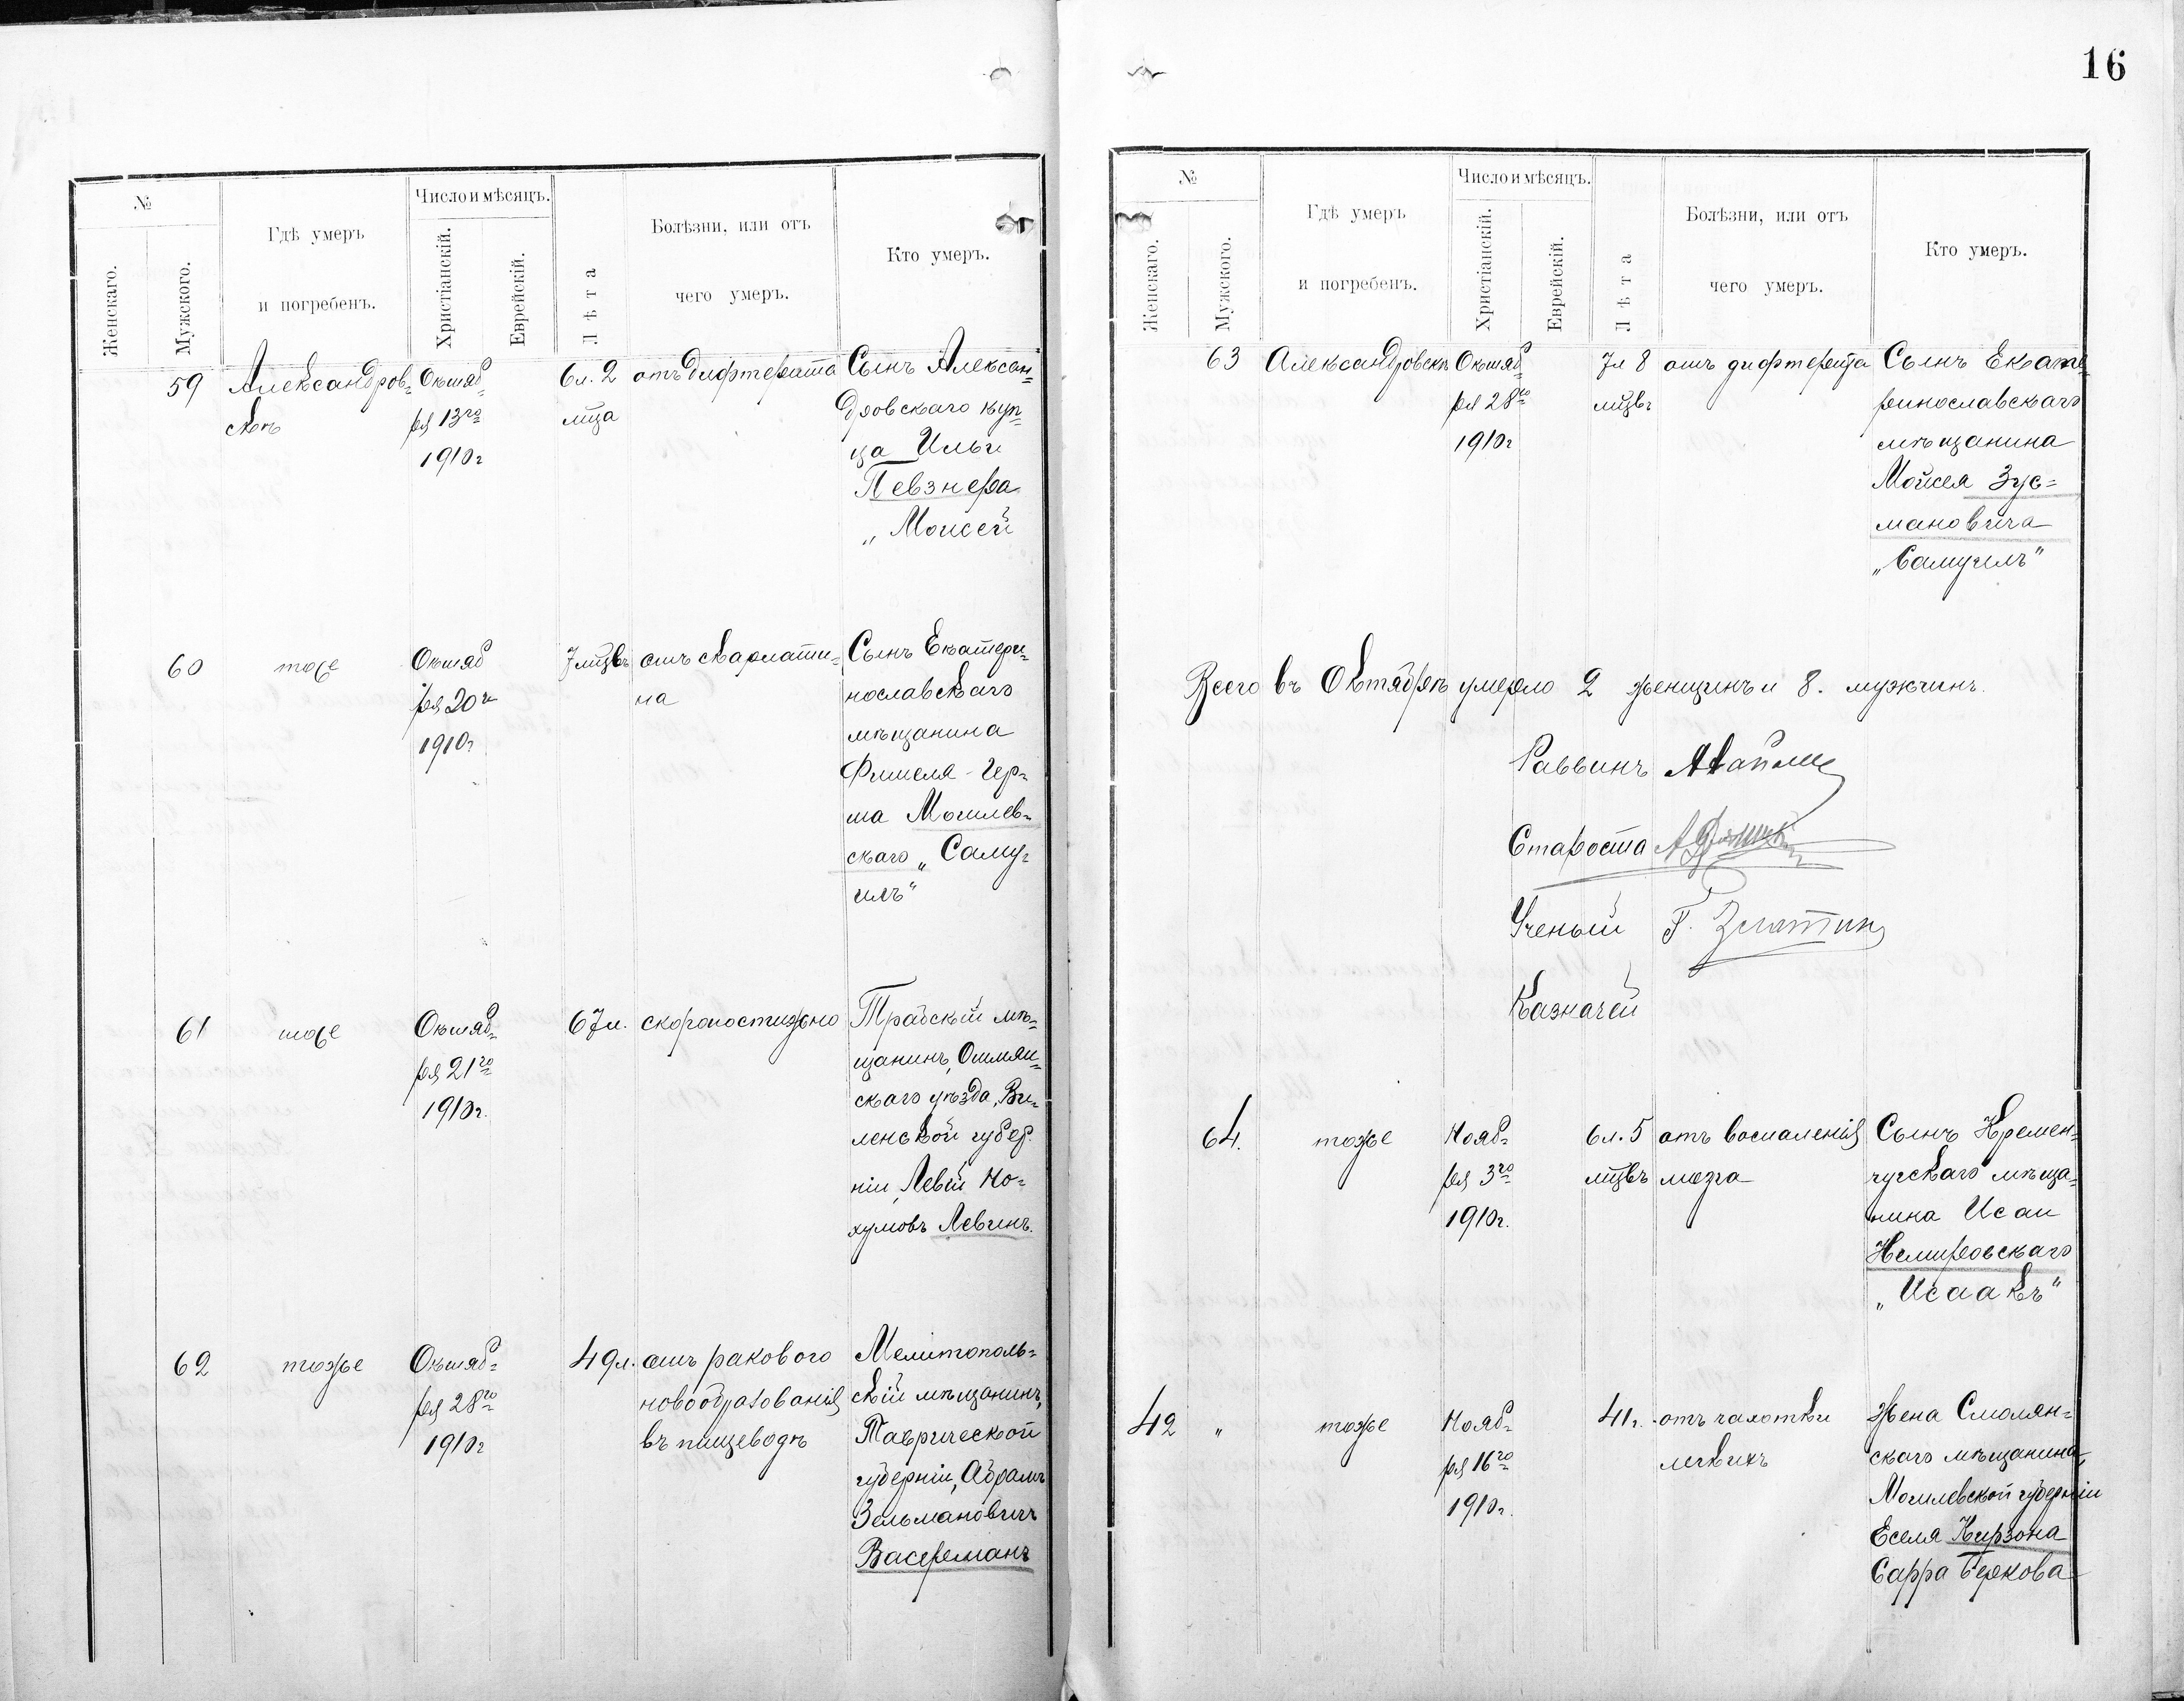 16
№
Число и мѣсяцъ.
Женскаго.
Мужского.
Гдѣ умеръ
и погребенъ.
Христіанскій.
Еврейскій.
Лѣта
Болѣзни, или отъ
чего умеръ.
Кто умеръ.
59
Александров-
скъ
Октяб-
ря 13го
1910г
6л. 2
мца
отъ дифтерита
Сынъ Алексан-
дровскаго куп-
ца Ильи
Певзнера
„Моисей
60
тоже
Октяб
ря 20г
1910г
7 мцвъ
отъ скарлати-
на
Сынъ Екатери-
нославскаго
мѣщанина
Фишеля-Гер-
ша Могилев-
скаго „Саму-
илъ“
61
тоже
Октяб-
ря 21го
1910г.
67л.
скоропостижно
Трабскій мѣ-
щанинъ, Ошмян-
скаго уѣзда, Ви-
ленской губер-
ніи, Левій Но-
хумовъ Левинъ.
62
тоже
Октяб-
ря 28го
1910г
49л.
отъ ракового
новообразованія
въ пищеводѣ
Мелитополь-
скій мѣщанинъ,
Таврической
губерніи, Абрамъ
Зельмановичъ
Васерманъ
№
Число и мѣсяцъ.
Женскаго.
Мужского.
Гдѣ умеръ
и погребенъ.
Христіанскій.
Еврейскій.
Лѣта
Болѣзни, или отъ
чего умеръ.
Кто умеръ.
63
Александровскъ
Октяб-
ря 28го
1910г
7л 8
мцвъ
отъ дифтерита
Сынъ Екате-
ринославскаго
мѣщанина
Мойсея Зус-
мановича
„Самуилъ“
Всего въ Октябрѣ умерло 2 женщинъ и 8. мужчинъ.
Раввинъ
Староста
Ученый Г. Златкин
Казначей
64.
тоже
Нояб-
ря 3го
1910г.
6л. 5
мцвъ
отъ воспаленія
мозга
Сынъ Кремен-
чугскаго мѣща-
нина Исаи
Немировскаго
„Исаакъ“
42 "
тоже
Нояб-
ря 16го
1910г.
41г.
отъ чахотки
легкихъ
Жена Смолян-
скаго мѣщанина,
Могилевской губерніи
Еселя Кирзона
Сарра Беркова